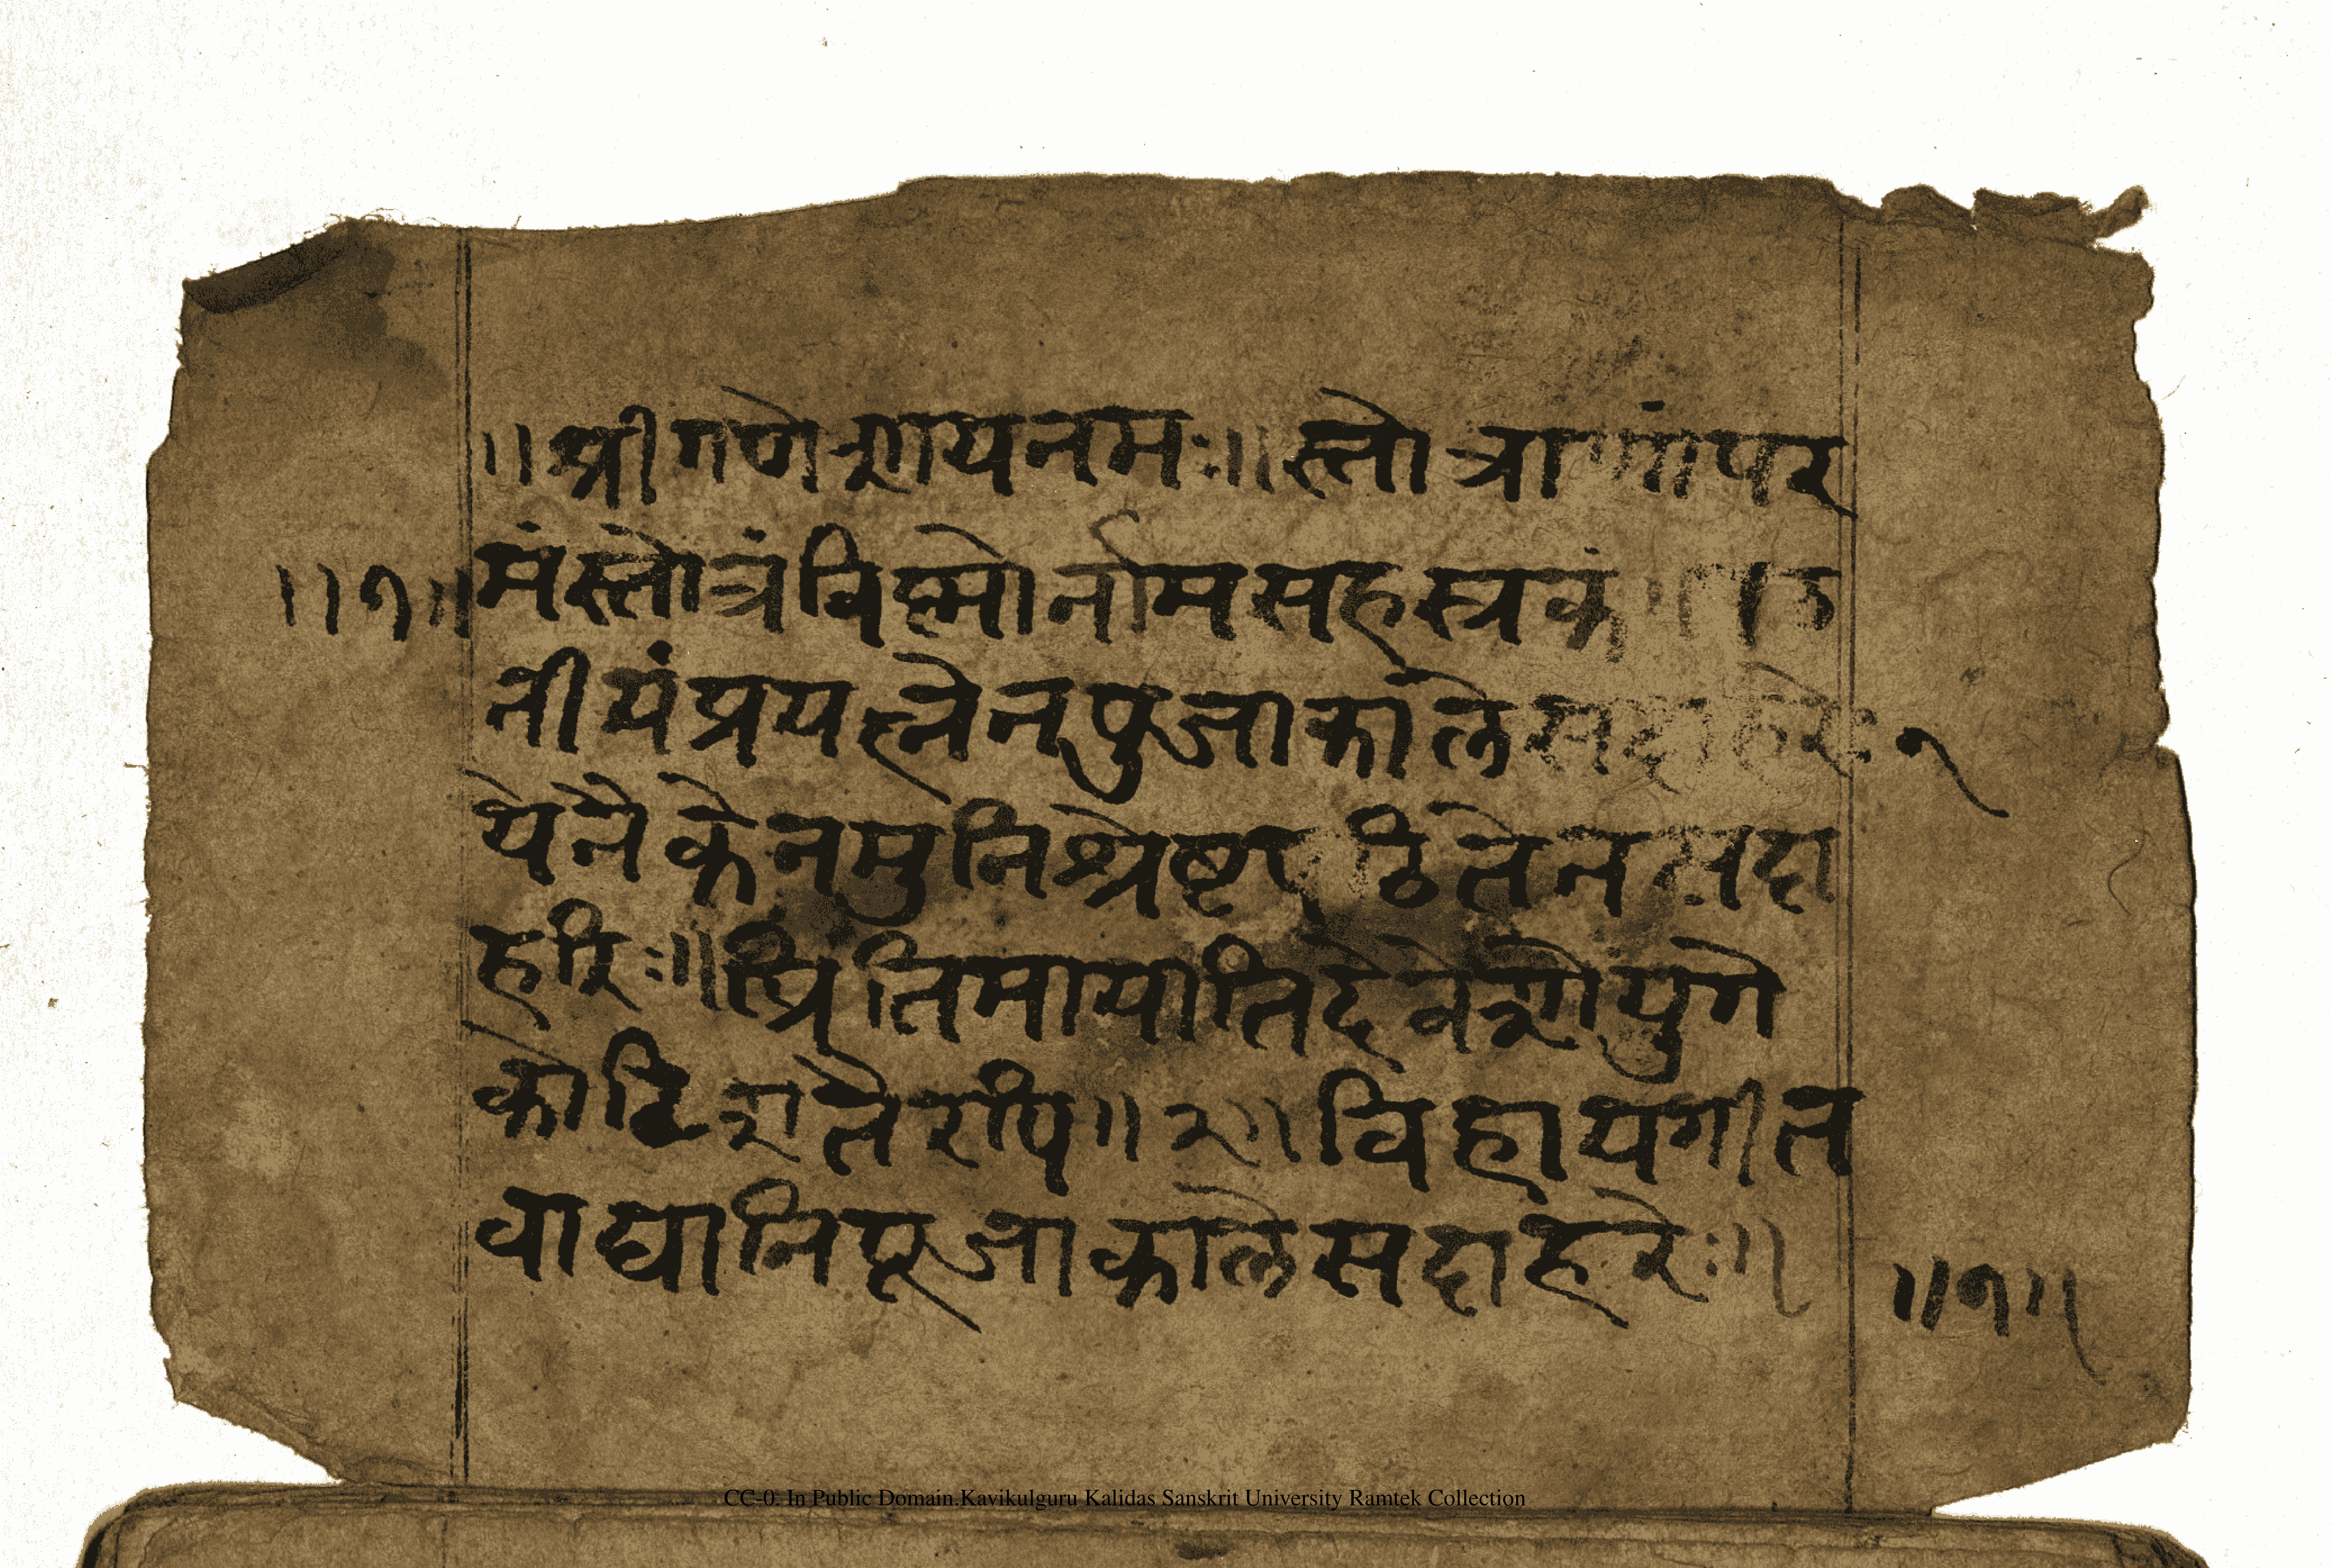 ॥श्रीगणेशायनमः॥स्तोत्राणांपर
॥१॥
मंस्तोत्रंविष्णोर्नामसहस्त्रकं
नीयंप्रयत्नेनपुजाकालेसदाहरेः१
येनैकेनमुनिश्रेष्टपठितेनसदा
हरिः॥प्रितिमायातिदेवेशोयुगे
कोटिशतैरपि॥२॥विहायगीत
वाद्यानिपूजाकालेसदाहरेः॥
॥१॥
CC-0. In Public Domain.Kavikulguru Kalidas Sanskrit University Ramtek Collection